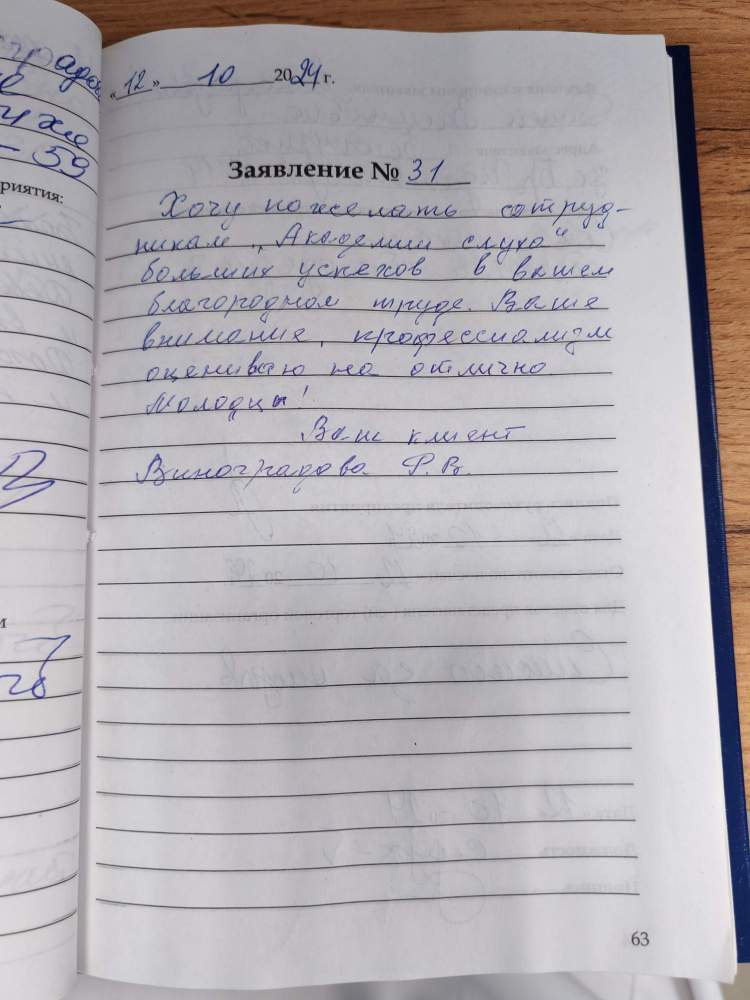 «12» 10 2024 г.
Заявление № 31
Хочу пожелать сотруд-
никам „Академии слуха"
больших успехов в вашем
благородном труде. Ваше
внимание, профессионализм
оцениваю на отлично
Молодцы!
Ваш клиент
Виноградова Р. В.
63
- 59
риятия:
и